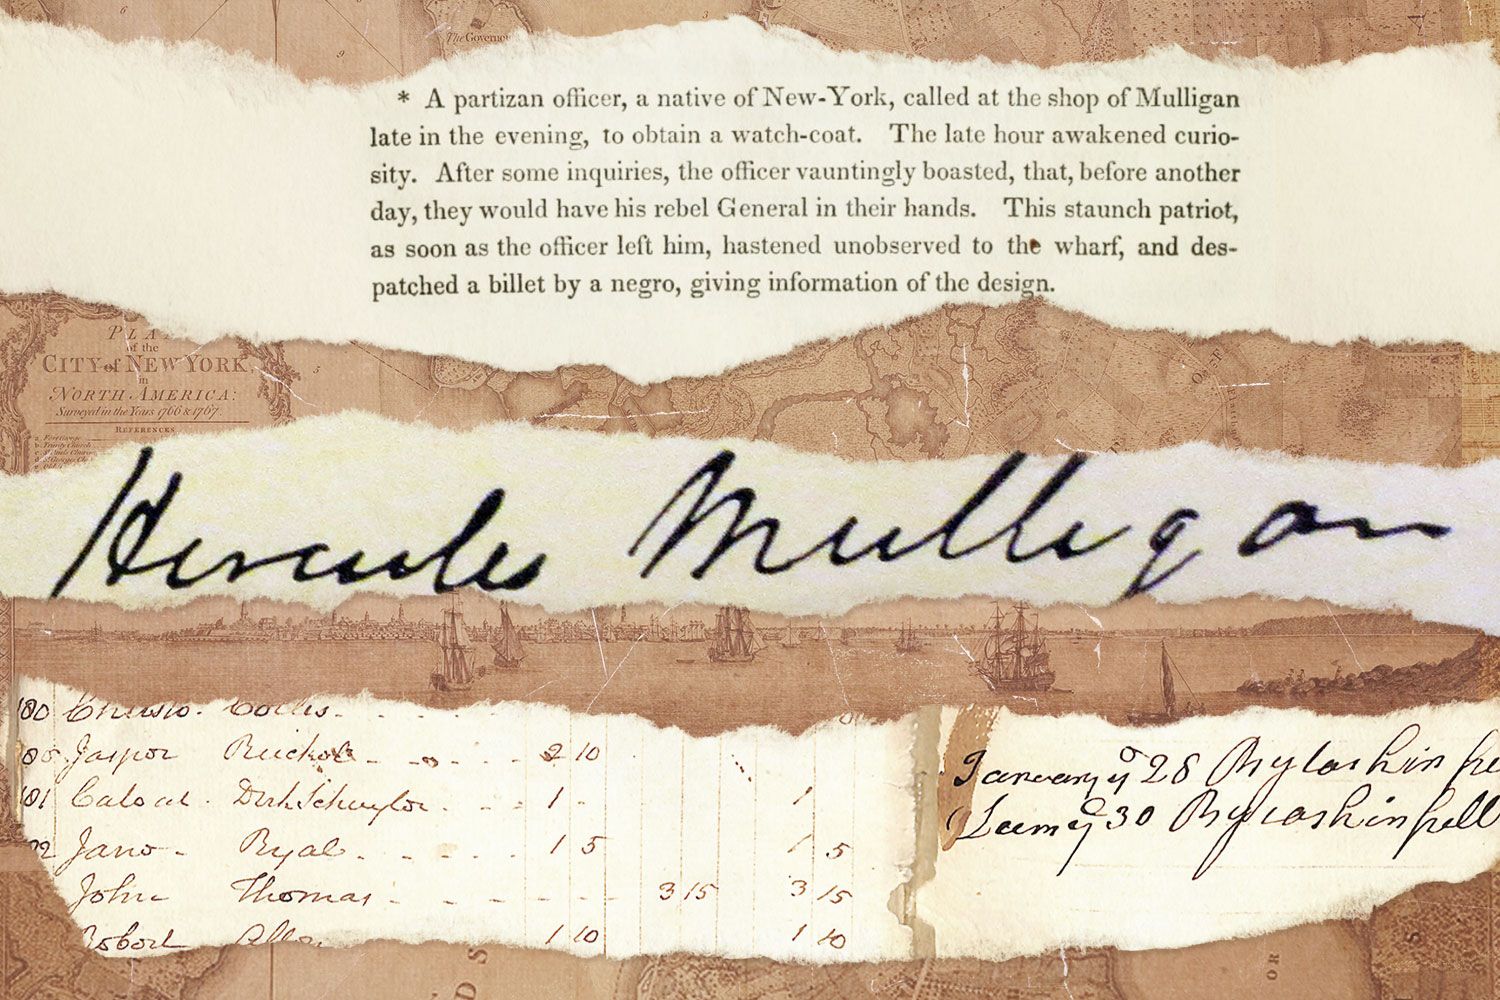 The Governo
* A partizan officer, a native of New-York, called at the shop of Mulligan
late in the evening, to obtain a watch-coat. The late hour awakened curio-
sity. After some inquiries, the officer vauntingly boasted, that, before another
day, they would have his rebel General in their hands. This staunch patriot,
as soon as the officer left him, hastened unobserved to the wharf, and des-
patched a billet by a negro, giving information of the design.
PLA
of the
CITY of NEW YORK
in
NORTH AMERICA:
Surveyed in the Years 1766 & 1767.
REFERENCES
Hercules Mulligan
180
Jaspor 2 10
181 Dirk Schuyler 1 1
Ryal 1 5 1 5
John Thomas 3 15 3 15
Robert 1 10 1 10
January 28 By Cash in
30 By Cash in full
S
OR
D S